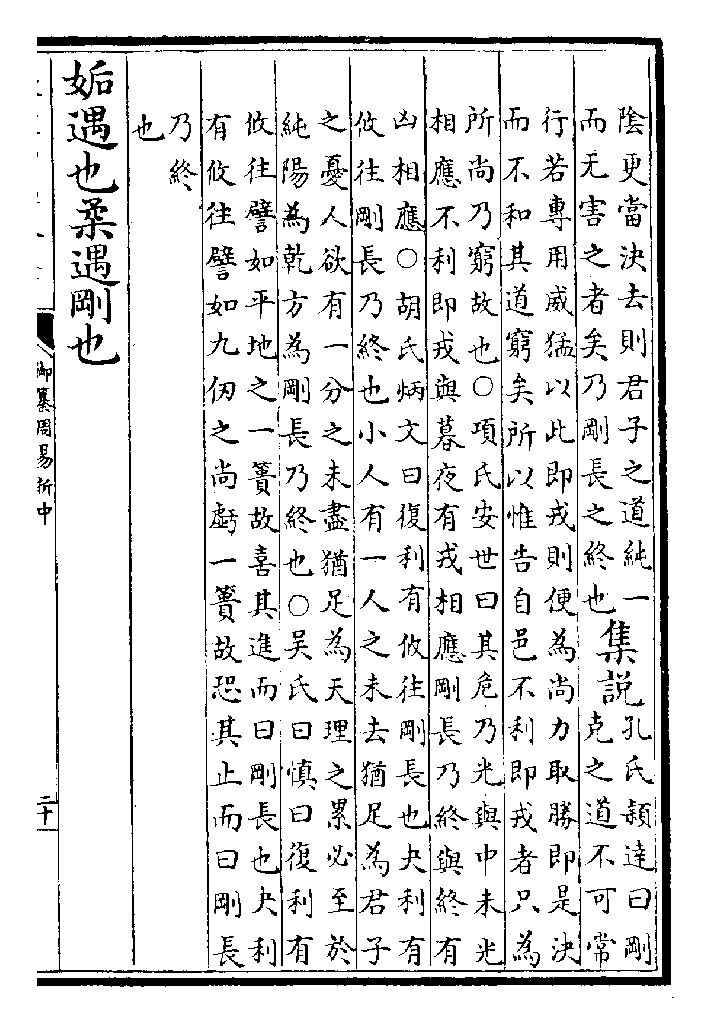 陰更當決去則君子之道純一
而无害之者矣乃剛長之終也
集說
孔氏穎達曰剛
克之道不可常
行若專用威猛以此即戎則便為尚力取勝即是決
而不和其道窮矣所以惟告自邑不利即戎者只為
所尚乃窮故也○項氏安世曰其危乃光與中未光
相應不利即戎與暮夜有戎相應剛長乃終與終有
凶相應○胡氏炳文曰復利有攸往剛長也夬利有
攸往剛長乃終也小人有一人之未去猶足為君子
之憂人欲有一分之未盡猶足為天理之累必至於
純陽為乾方為剛長乃終也○吳氏曰慎曰復利有
攸往譬如平地之一簣故喜其進而曰剛長也夬利
有攸往譬如九仞之尚虧一簣故恐其止而曰剛長
乃終
也
姤遇也柔遇剛也
御纂周易折中
二十